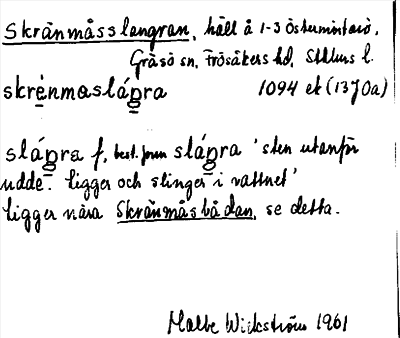 Skränmåsslangran, häll å 1-3 Östermintarö,
Gräsö sn, Frösåkers hd, Sthlms l.
skrènmɑslápra 1094 ek (13 J0a)
slápra f, best. form slápra 'sten utanför
udde. Ligger och slinger i vattnet'
Ligger nära Skränmåsbådan, se detta.
Malte Wickström 1961